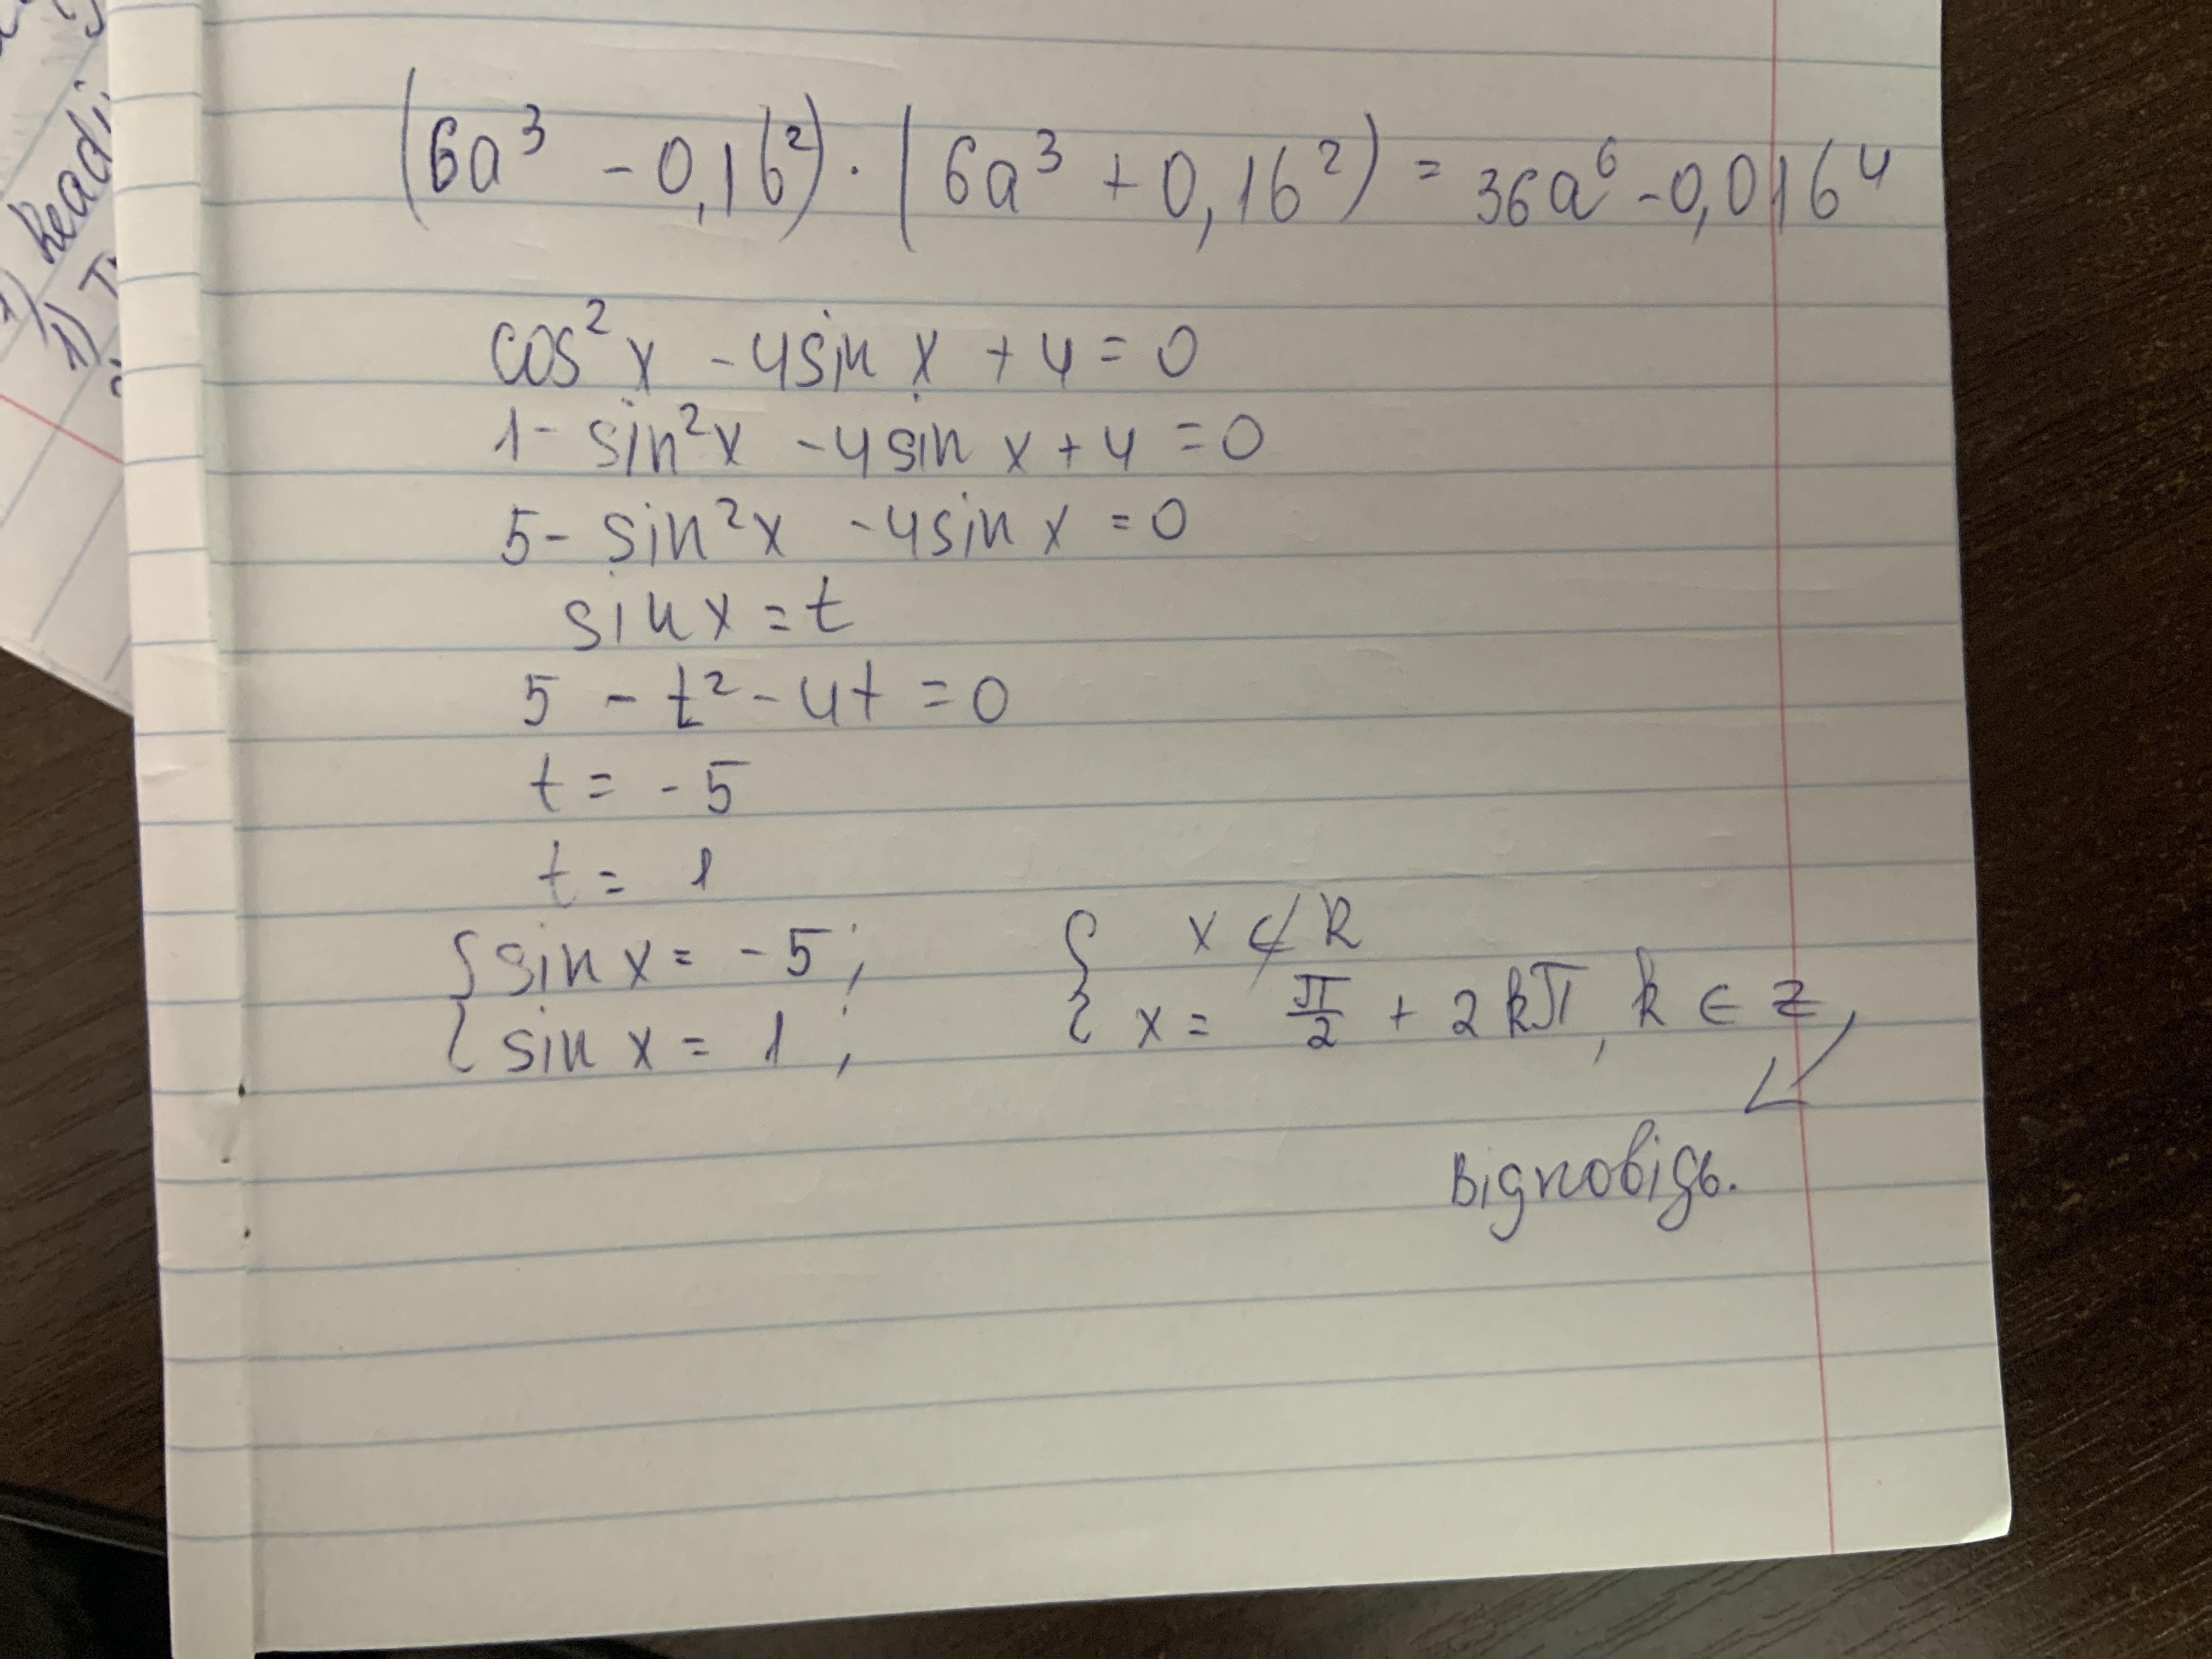 (6a³ - 0,1b²) · (6a³ + 0,1b²) = 36a⁶ - 0,01b⁴
cos²x - 4sin x + 4 = 0
1 - sin²x - 4sin x + 4 = 0
5 - sin²x - 4sin x = 0
sin x = t
5 - t² - 4t = 0
t = -5
t = 1
{ sin x = -5; { x ⊄ R
sin x = 1; x = π/2 + 2kπ, k ∈ z
відповідь.
Readi
1)